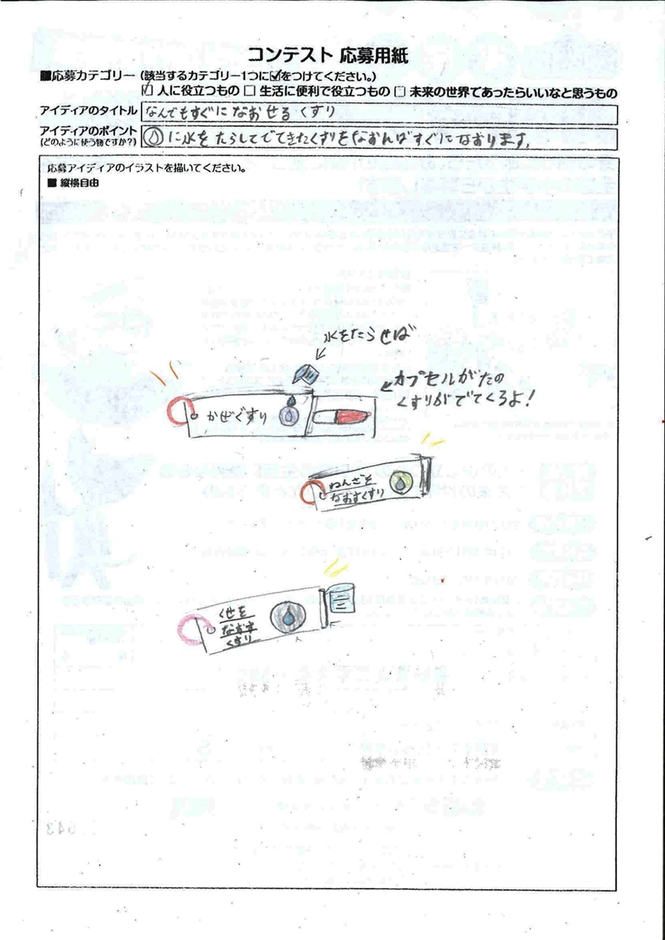 コンテスト 応募用紙
■応募カテゴリー（該当するカテゴリー1つに☑をつけてください。）
☑ 人に役立つもの □ 生活に便利で役立つもの □ 未来の世界であったらいいなと思うもの
アイディアのタイトル なんでもすぐになおせるくすり
アイディアのポイント
(どのように使う物ですか?)
に水をたらしてでてきたくすりをなおんばすぐになおります。
応募アイディアのイラストを描いてください。
■ 縦横自由
水をたらせば
カプセルがたの
くすりがでてくるよ!
かぜぐすり
ねんざを
なおすくすり
くせを
なおす
くすり